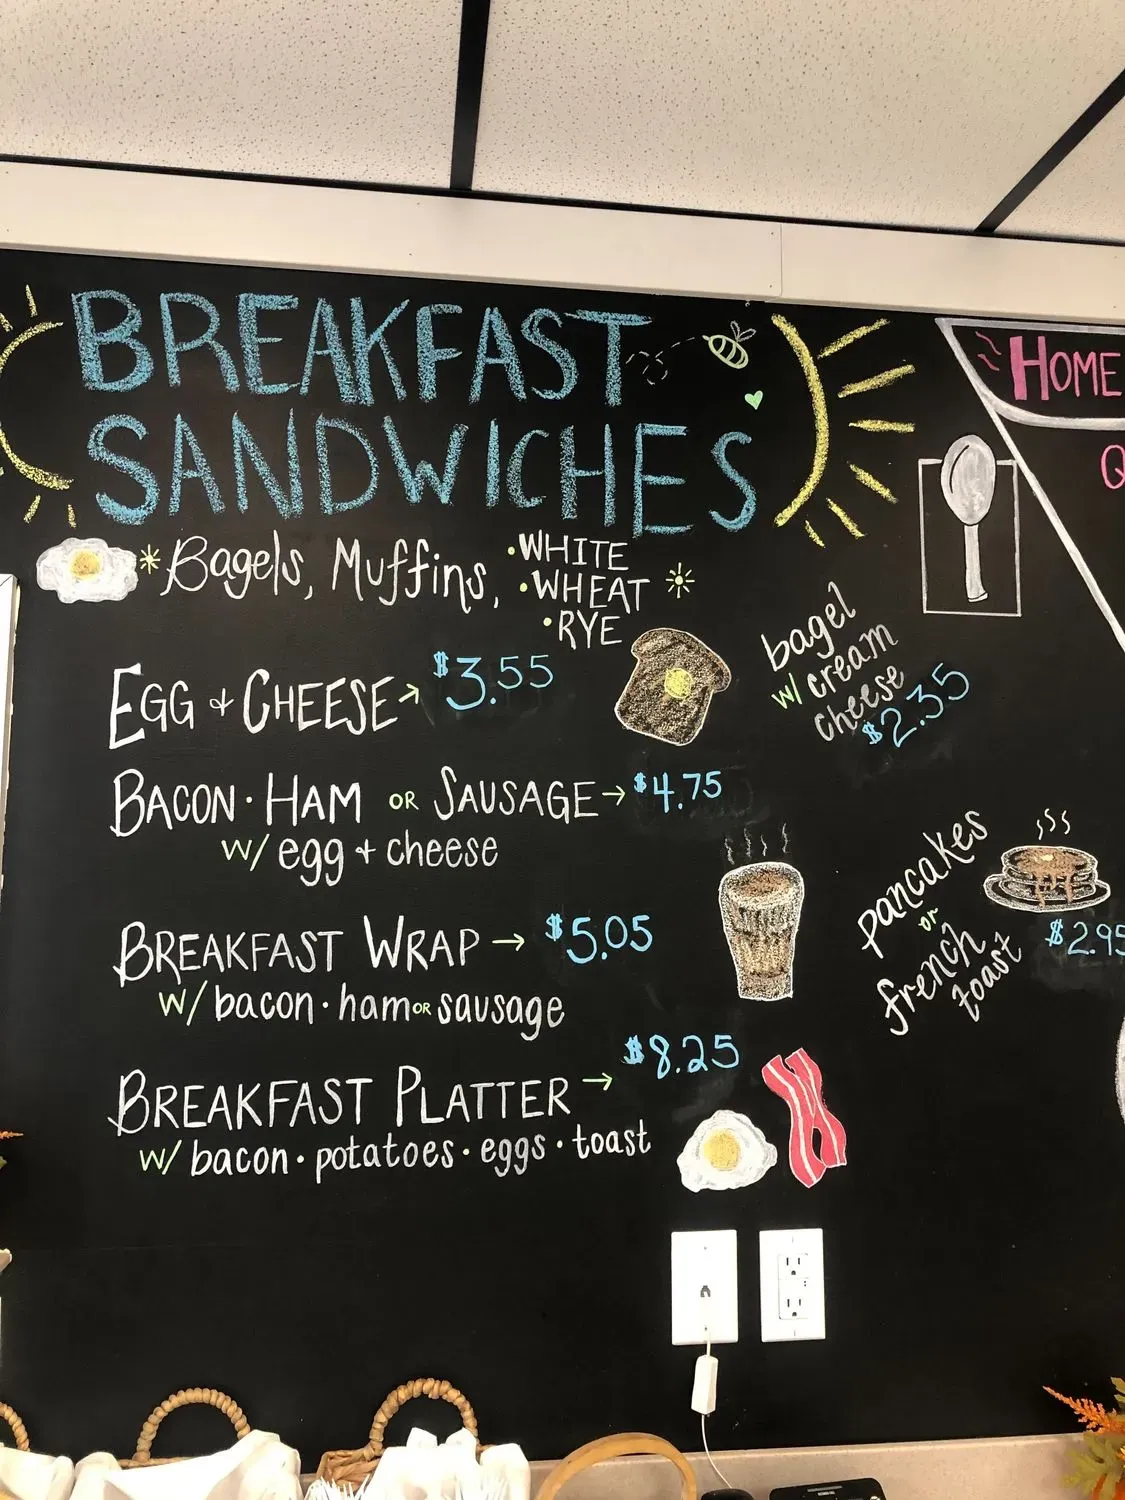 BREAKFAST
SANDWICHES
Bagels, Muffins,
• WHITE
• WHEAT
• RYE
EGG + CHEESE → $3.55
BACON · HAM OR SAUSAGE → $4.75
w/ egg + cheese
BREAKFAST WRAP → $5.05
w/ bacon · ham OR sausage
BREAKFAST PLATTER → $8.25
w/ bacon · potatoes · eggs · toast
bagel
w/ cream
cheese
$2.35
pancakes
or
french
toast
$2.95
HOME
Q